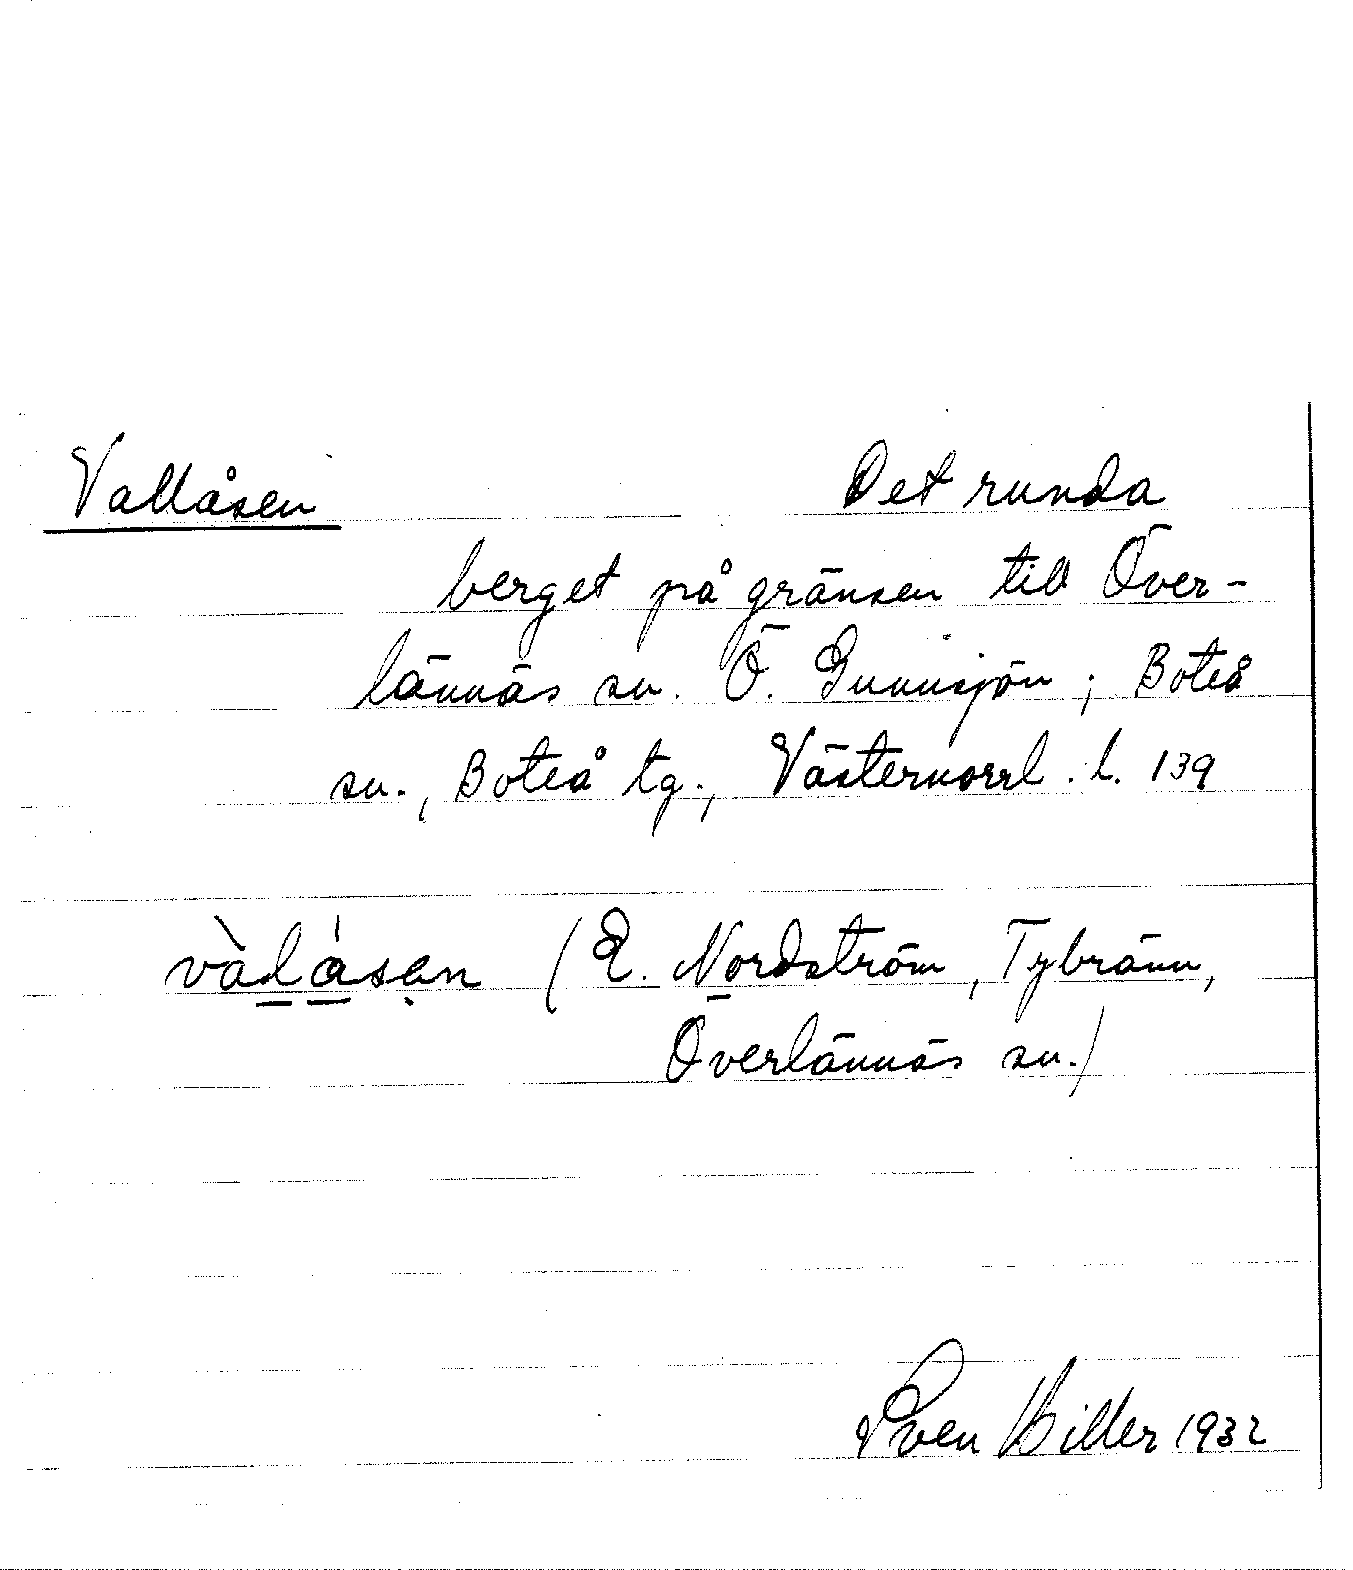 Vallåsen Det runda
berget på gränsen till Över-
lännäs sn. Ö. Gunnsjön; Boteå
sn., Boteå tg., Västernorrl. l. 139
vàlåsen (E. Nordström, Tybränn,
Överlännäs sn.)
Sven Hiller 1932